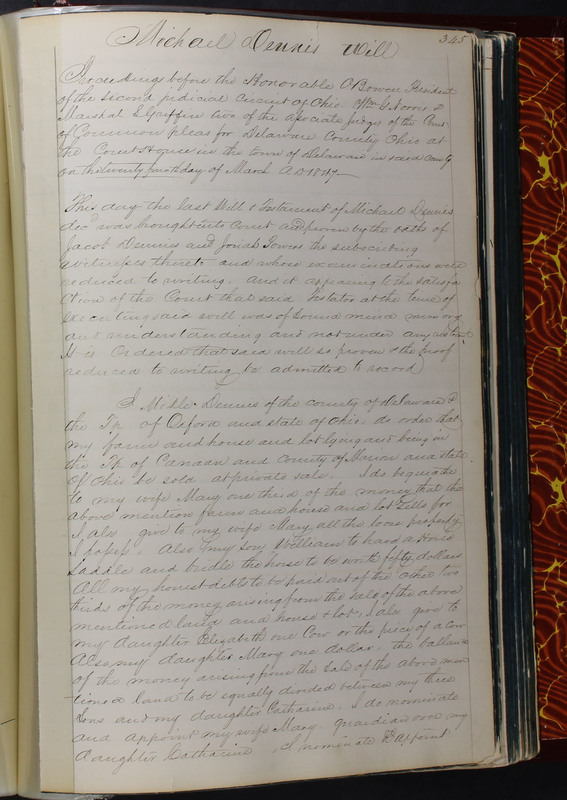 345
Michael Dennis Will
Proceedings before the Honorable O Bowen President
of the second judicial Circuit of Ohio Wm G Norris &
Marshal L Griffin two of the associate judges of the Court
of Common pleas for Delaware County Ohio at
the Court House in the town of Delaware in said County
on the twenty fourth day of March AD 1847
This day the Last Will & Testament of Michael Dennis
decd was brought into Court and proven by the oaths of
Jacob Dennis and Josiah Powers the subscribing
witnesses thereto and whose examinations were
reduced to writing. And it appearing to the satisfa
ction of the Court that said Testator at the time of
executing said will was of sound mind memory
and understanding and not under any restraint
It is Ordered that said will so proven & the proof
reduced to writing be admitted to record
I Dennis of the county of delaware &
the Tp of Oxford and state of Ohio do order that
my farm and house and lot lying and being in
the Tp of Canaan and County of Merion and state
of Ohio be sold at private sale. I do bequeathe
to my wife Mary one third of the money that the
above mention farm and house and lot sells for
I also give to my wife Mary all the loose property
I possess. Also my son William to hav a Horse
Saddle and bridle the horse to be worth fifty dollars
All my honest debts to be paid out of the other two
thirds of the money arising from the sale of the above
mentioned land and house & lot, I also give to
my daughter Elizabeth one Cow or the price of a Cow
Also my daughter Mary one dollar, the ballance
of the money arising from the Sale of the above men
tioned land to be equally divided between my three
Sons and my daughter Catharine. I do nominate
and appoint my wife Mary guardian over my
daughter Catharine. I nominate & appoint